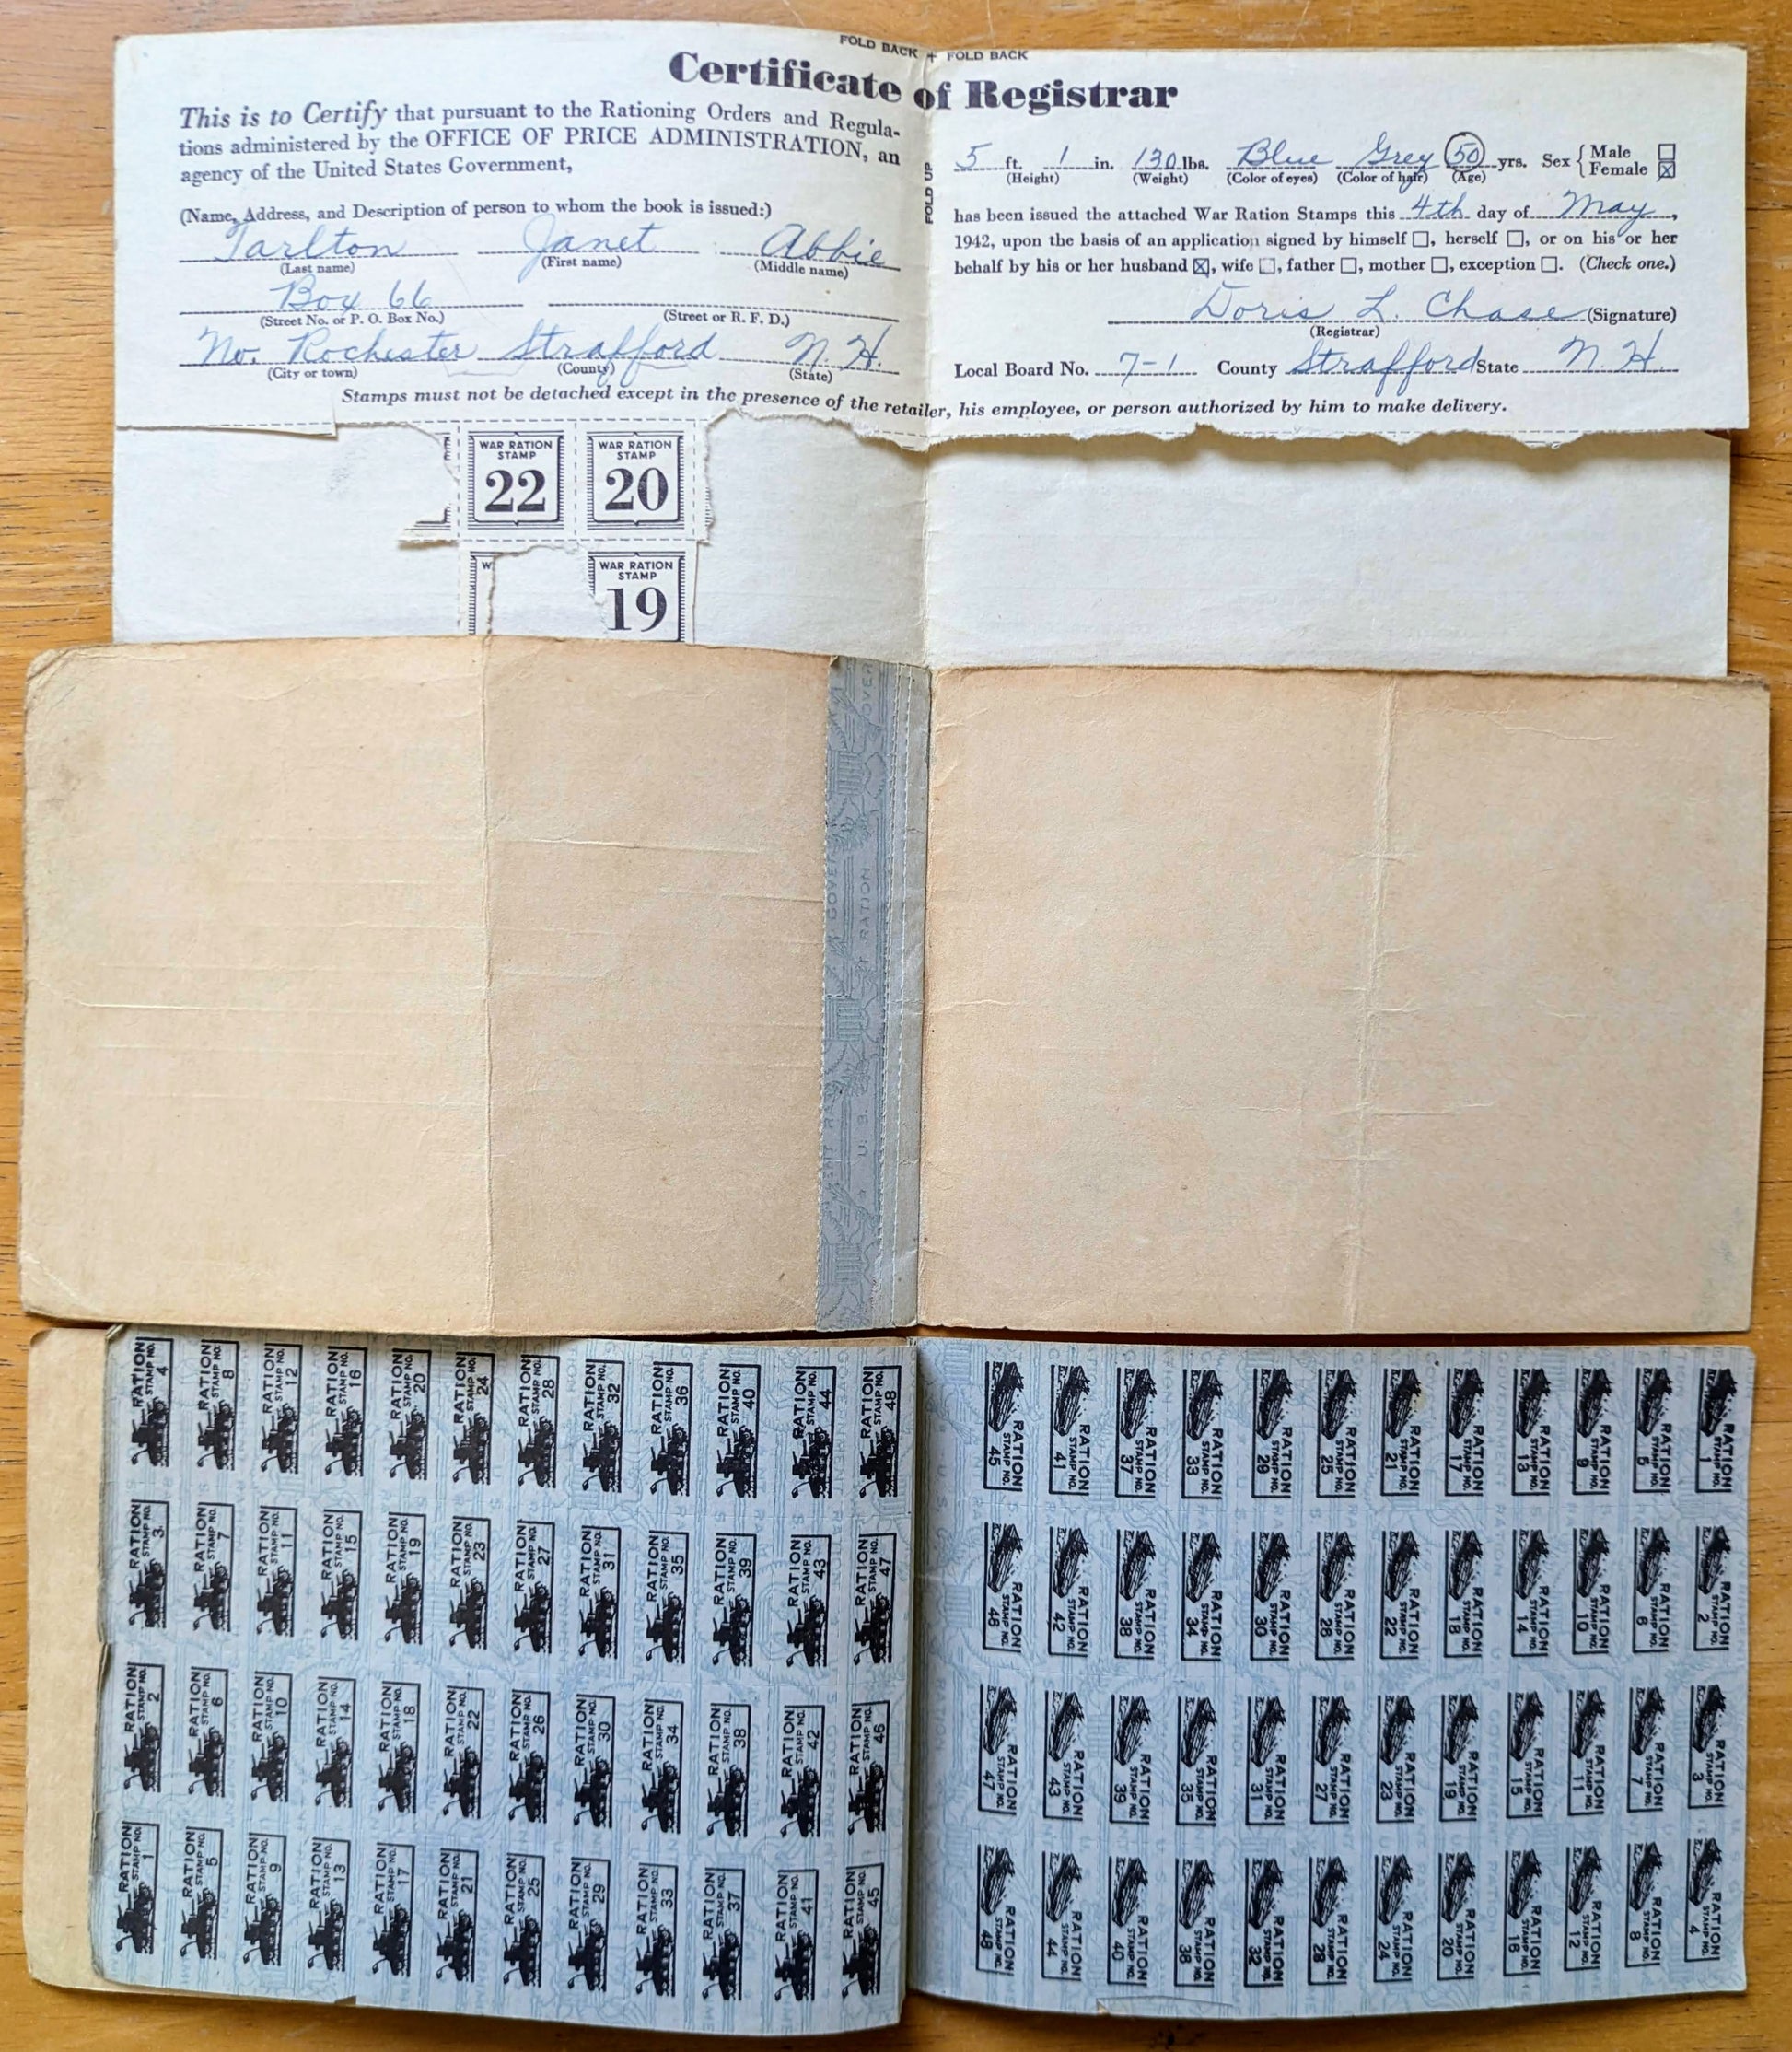 FOLD BACK + FOLD BACK
Certificate of Registrar
This is to Certify that pursuant to the Rationing Orders and Regula-
tions administered by the OFFICE OF PRICE ADMINISTRATION, an
agency of the United States Government,
(Name, Address, and Description of person to whom the book is issued:)
Tarlton Janet Abbie
(Last name) (First name) (Middle name)
Box 66
(Street No. or P. O. Box No.) (Street or R. F. D.)
No. Rochester Strafford N. H.
(City or town) (County) (State)
FOLD UP
5 ft. 1 in. 130 lbs. Blue Grey 50 yrs. Sex { Male
Female
(Height) (Weight) (Color of eyes) (Color of hair) (Age)
has been issued the attached War Ration Stamps this 4th day of May,
1942, upon the basis of an application signed by himself ☐, herself ☐, or on his or her
behalf by his or her husband ☒, wife ☐, father ☐, mother ☐, exception ☐. (Check one.)
Doris L. Chase (Signature)
(Registrar)
Local Board No. 7-1 County Strafford State N. H.
Stamps must not be detached except in the presence of the retailer, his employee, or person authorized by him to make delivery.
WAR RATION
STAMP
22
WAR RATION
STAMP
20
W
WAR RATION
STAMP
19
OVER
GOVER
RATION
U. S.
RATION STAMP NO. 4
RATION STAMP NO. 8
RATION STAMP NO. 12
RATION STAMP NO. 16
RATION STAMP NO. 20
RATION STAMP NO. 24
RATION STAMP NO. 28
RATION STAMP NO. 32
RATION STAMP NO. 36
RATION STAMP NO. 40
RATION STAMP NO. 44
RATION STAMP NO. 48
RATION STAMP NO. 3
RATION STAMP NO. 7
RATION STAMP NO. 11
RATION STAMP NO. 15
RATION STAMP NO. 19
RATION STAMP NO. 23
RATION STAMP NO. 27
RATION STAMP NO. 31
RATION STAMP NO. 35
RATION STAMP NO. 39
RATION STAMP NO. 43
RATION STAMP NO. 47
RATION STAMP NO. 2
RATION STAMP NO. 6
RATION STAMP NO. 10
RATION STAMP NO. 14
RATION STAMP NO. 18
RATION STAMP NO. 22
RATION STAMP NO. 26
RATION STAMP NO. 30
RATION STAMP NO. 34
RATION STAMP NO. 38
RATION STAMP NO. 42
RATION STAMP NO. 46
RATION STAMP NO. 1
RATION STAMP NO. 5
RATION STAMP NO. 9
RATION STAMP NO. 13
RATION STAMP NO. 17
RATION STAMP NO. 21
RATION STAMP NO. 25
RATION STAMP NO. 29
RATION STAMP NO. 33
RATION STAMP NO. 37
RATION STAMP NO. 41
RATION STAMP NO. 45
RATION STAMP NO. 45
RATION STAMP NO. 41
RATION STAMP NO. 37
RATION STAMP NO. 33
RATION STAMP NO. 29
RATION STAMP NO. 25
RATION STAMP NO. 21
RATION STAMP NO. 17
RATION STAMP NO. 13
RATION STAMP NO. 9
RATION STAMP NO. 5
RATION STAMP NO. 1
RATION STAMP NO. 46
RATION STAMP NO. 42
RATION STAMP NO. 38
RATION STAMP NO. 34
RATION STAMP NO. 30
RATION STAMP NO. 26
RATION STAMP NO. 22
RATION STAMP NO. 18
RATION STAMP NO. 14
RATION STAMP NO. 10
RATION STAMP NO. 6
RATION STAMP NO. 2
RATION STAMP NO. 47
RATION STAMP NO. 43
RATION STAMP NO. 39
RATION STAMP NO. 35
RATION STAMP NO. 31
RATION STAMP NO. 27
RATION STAMP NO. 23
RATION STAMP NO. 19
RATION STAMP NO. 15
RATION STAMP NO. 11
RATION STAMP NO. 7
RATION STAMP NO. 3
RATION STAMP NO. 48
RATION STAMP NO. 44
RATION STAMP NO. 40
RATION STAMP NO. 36
RATION STAMP NO. 32
RATION STAMP NO. 28
RATION STAMP NO. 24
RATION STAMP NO. 20
RATION STAMP NO. 16
RATION STAMP NO. 12
RATION STAMP NO. 8
RATION STAMP NO. 4